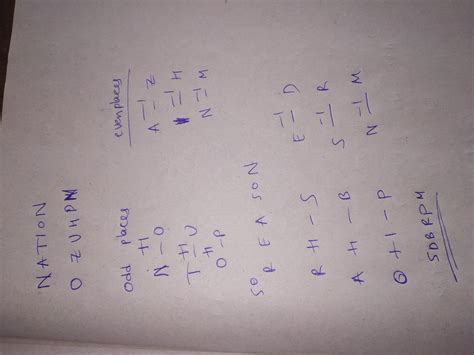 NATION
O Z U H P M
Odd places even places
N +1 – O A -1 – Z
T +1 – U I -1 – H
O +1 – P N -1 – M
So REASON
R +1 – S E -1 – D
A +1 – B S -1 – R
O +1 – P N -1 – M
SDBRPM